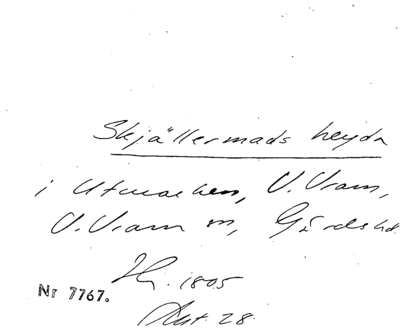 Skjällermads heyda
i Utmarken, V. Vram,
V. Vram sn, Gärds hd.
Hi. 1805
Nr 7767.
Akt. 28.